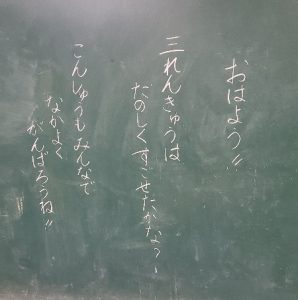 おはよう!!
三れんきゅうは
たのしくすごせたかな？
こんしゅうもみんなで
なかよく
がんばろうね!!